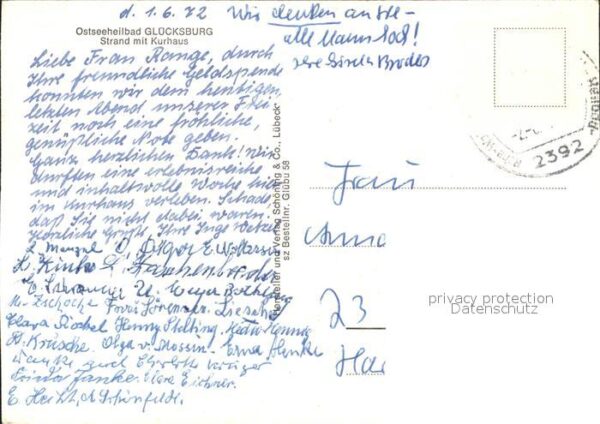 d. 1.6.72 Wir denken an Sie –
alle Mann hoch!
Ihre Gisela Broders
Ostseeheilbad GLÜCKSBURG
Strand mit Kurhaus
Liebe Frau Range, durch
Ihre freundliche Geldspende
konnten wir dem heutigen
letzten Abend unserer Frei
zeit noch eine fröhliche,
genüßliche Note geben.
Ganz herzlichen Dank! Wir
durften eine erlebnisreiche
und inhaltvolle Woche hier
im Kurhaus verleben. Schade
daß Sie nicht dabei waren.
Herzliche Grüße, Ihre Inge
L. Menzel
H.
E.
Frau Sörensen
Clara Henny
H. Krusche. Olga v. Mossin Erna Henke
Danke auch Charlotte Krüger
Frieda Janke. Elore Eichner.
E. Hecht,
Hersteller und Verlag Schöning & Co., Lübeck
sz Bestellnr. Glübu 58
2392
Frau
Anna
23
privacy protection
Datenschutz